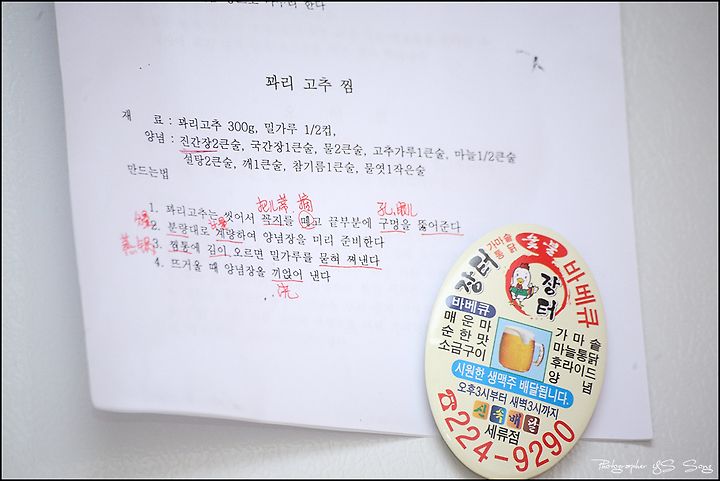 꽈리 고추 찜
재 료 : 꽈리고추 300g, 밀가루 1/2컵,
양념 : 진간장2큰술, 국간장1큰술, 물2큰술, 고추가루1큰술, 마늘1/2큰술
설탕2큰술, 깨1큰술, 참기름1큰술, 물엿1작은술
만드는법
摘
孔,眼儿
1. 꽈리고추는 씻어서 꼭지를 떼고 끝부분에 구멍을 뚫어준다
2. 분량대로 계량하여 양념장을 미리 준비한다
蒸锅
3. 찜통에 김이 오르면 밀가루를 묻혀 쪄낸다
4. 뜨거울 때 양념장을 끼얹어 낸다
浇
가마솥
통닭
숯불
바베큐
장터
장터
바베큐
매운마
순한맛
소금구이
가마솥
마늘통닭
후라이드
양념
시원한 생맥주 배달됩니다.
오후3시부터 새벽3시까지
신속배달
세류점
224-9290
Photographer YS Song